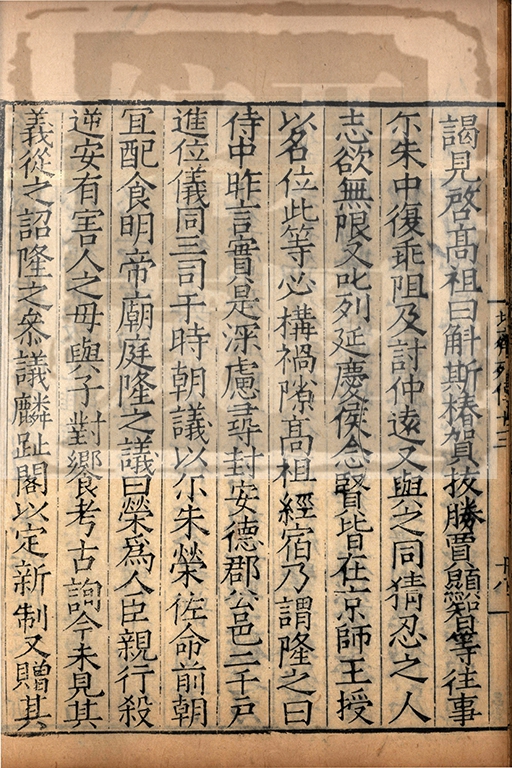 謁見啓髙祖曰斛斯椿賀拔勝賈顯智等往事
尒朱中復乖阻及討仲遠又與之同猜忍之人
志欲無限又叱列延慶侯念賢皆在京師王授
以名位此等必構禍隙髙祖經宿乃謂隆之曰
侍中昨言實是深慮尋封安德郡公邑二千户
進位儀同三司于時朝議以尒朱榮佐命前朝
宜配食明帝廟庭隆之議曰榮爲人臣親行殺
逆安有害人之母與子對饗考古詢今未見其
義從之詔隆之叅議麟趾閣以定新制又贈其